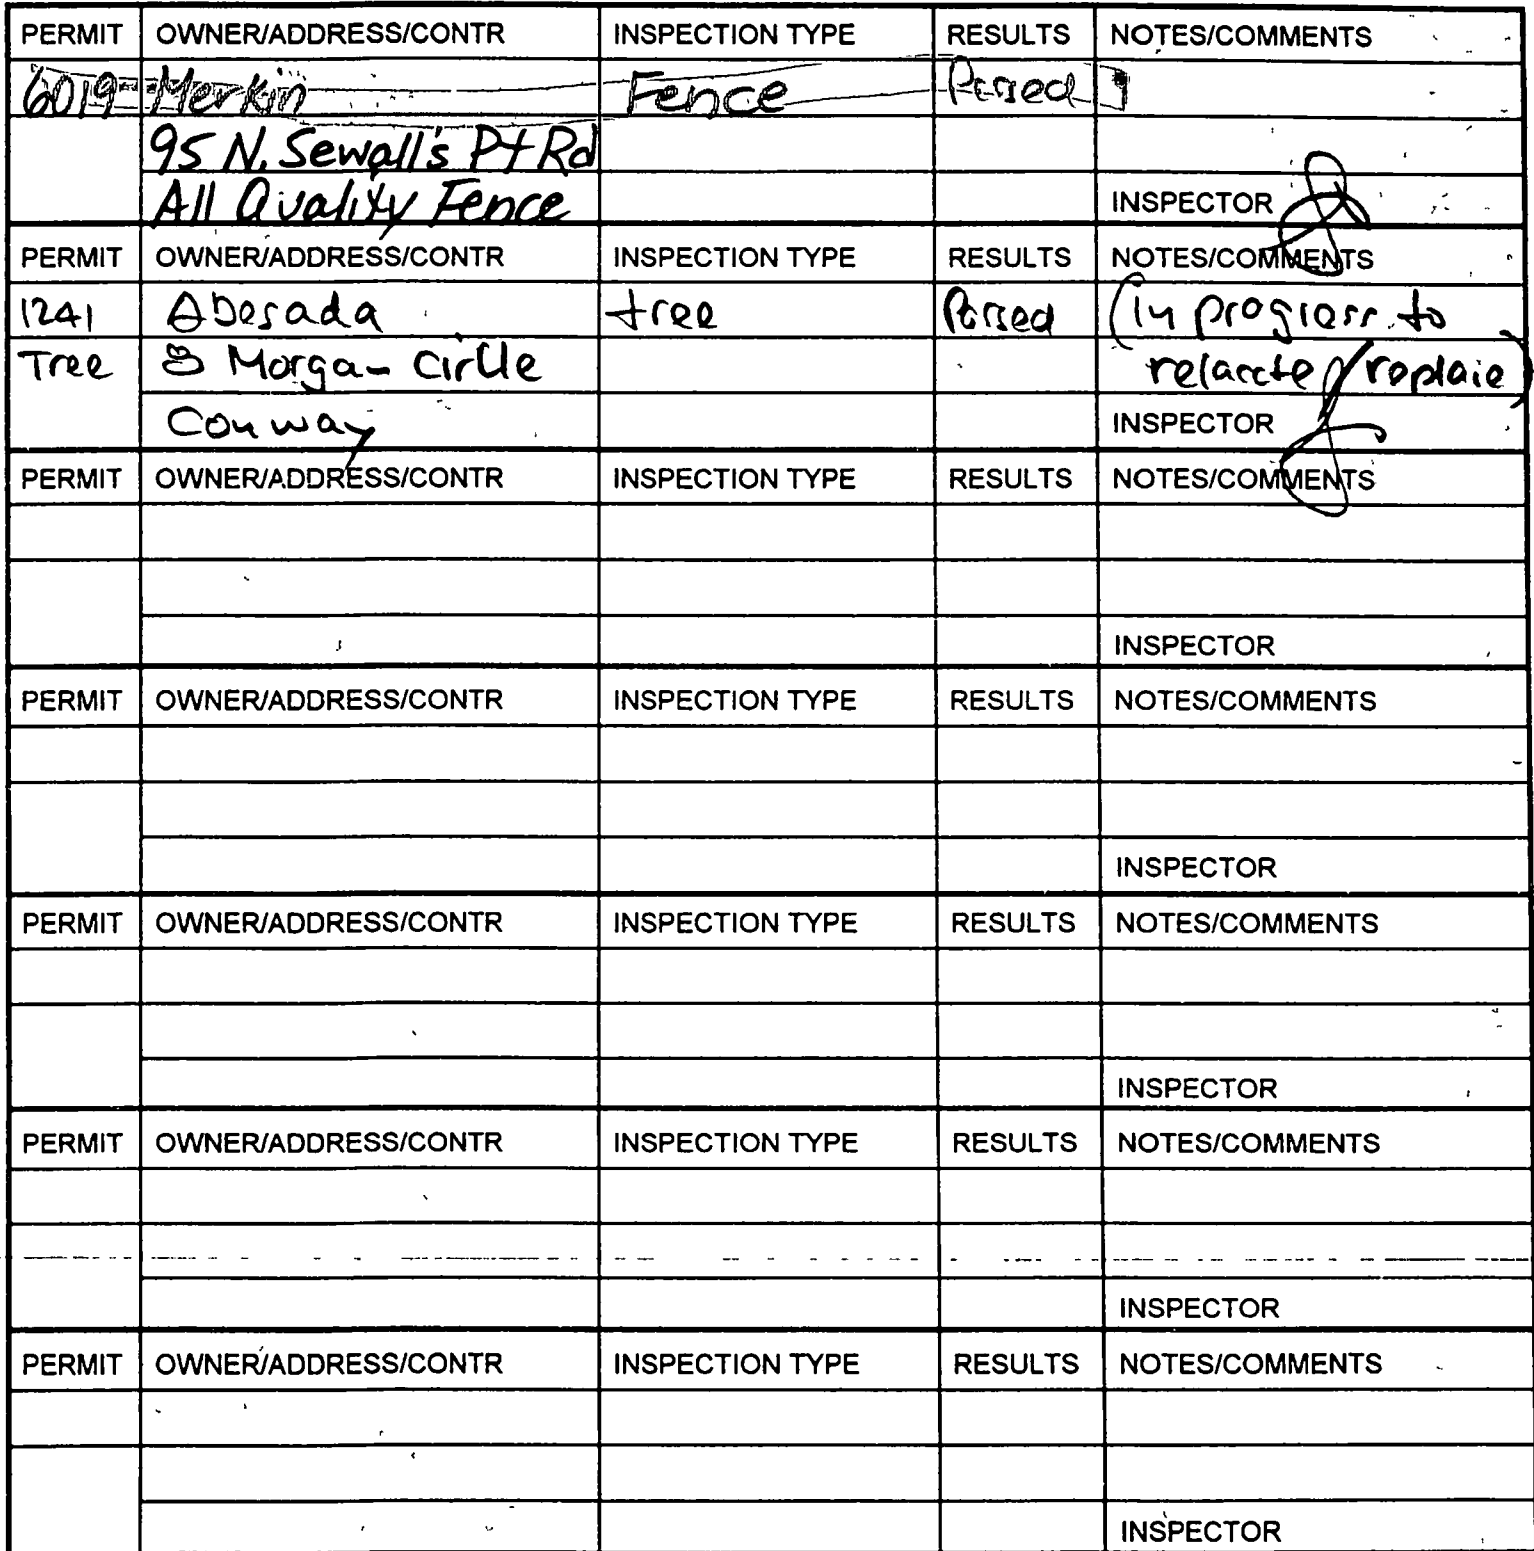 PERMIT OWNER/ADDRESS/CONTR INSPECTION TYPE RESULTS NOTES/COMMENTS
6019 Merkin Fence Passed
95 N. Sewall's Pt Rd
All Quality Fence INSPECTOR
PERMIT OWNER/ADDRESS/CONTR INSPECTION TYPE RESULTS NOTES/COMMENTS
1241 Abesada tree Passed (in progress to
Tree 8 Morgan Circle relocate/replace)
Conway INSPECTOR
PERMIT OWNER/ADDRESS/CONTR INSPECTION TYPE RESULTS NOTES/COMMENTS
INSPECTOR
PERMIT OWNER/ADDRESS/CONTR INSPECTION TYPE RESULTS NOTES/COMMENTS
INSPECTOR
PERMIT OWNER/ADDRESS/CONTR INSPECTION TYPE RESULTS NOTES/COMMENTS
INSPECTOR
PERMIT OWNER/ADDRESS/CONTR INSPECTION TYPE RESULTS NOTES/COMMENTS
INSPECTOR
PERMIT OWNER/ADDRESS/CONTR INSPECTION TYPE RESULTS NOTES/COMMENTS
INSPECTOR